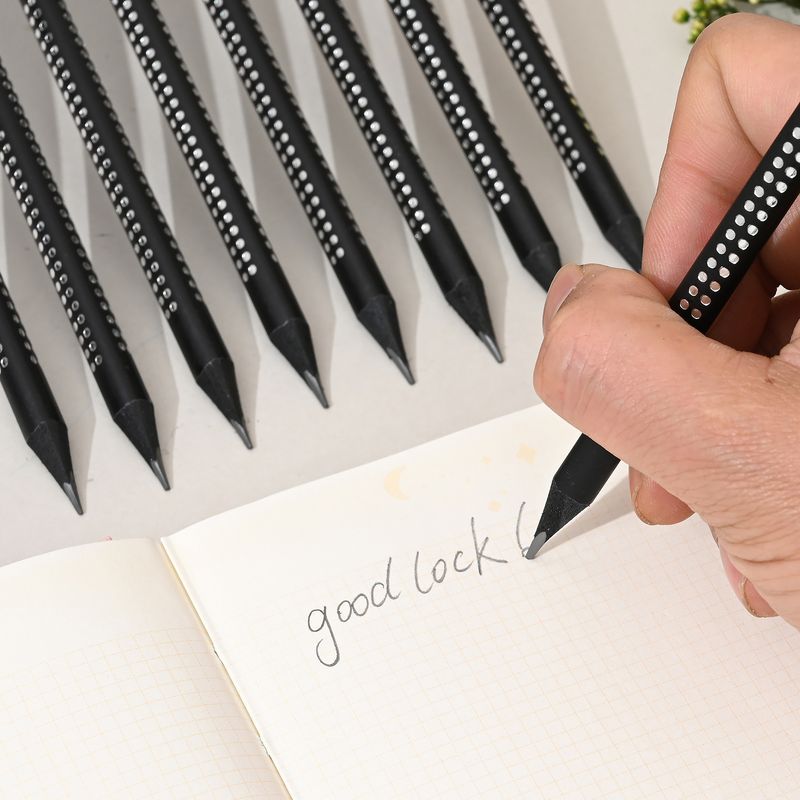 good lock